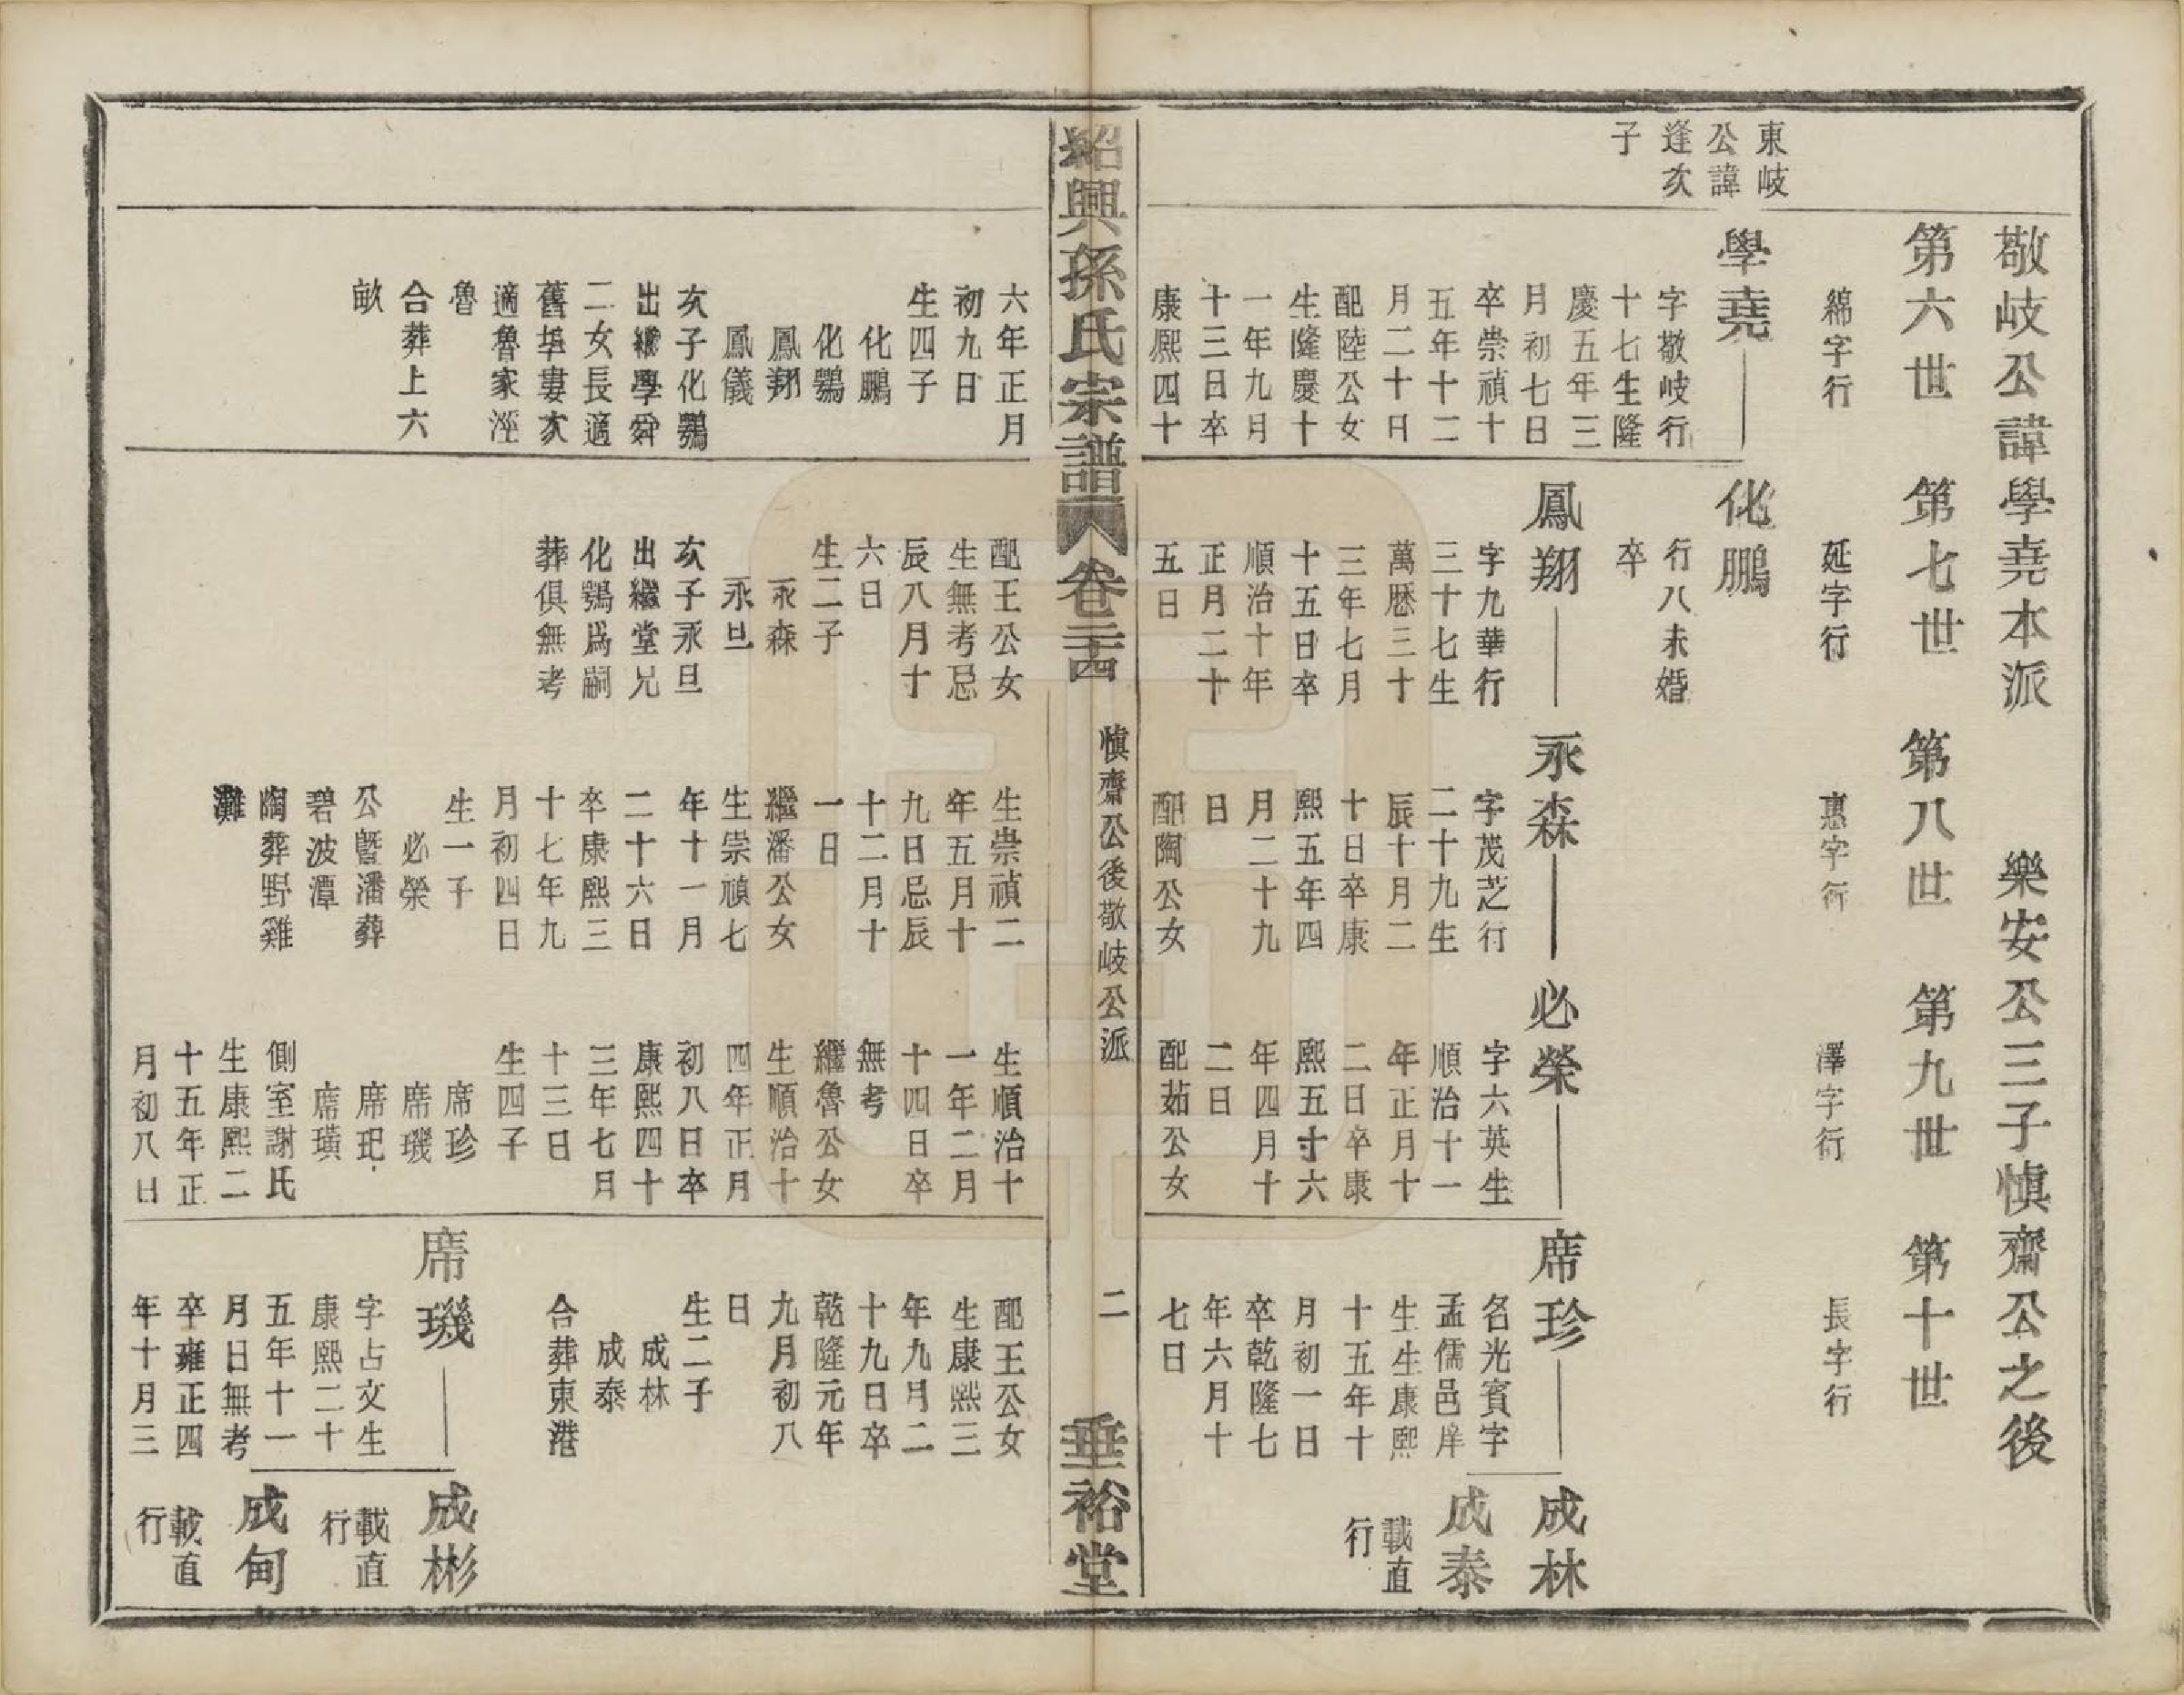 敬岐公諱學堯本派　樂安公三子慎齋公之後
第六世　第七世　第八世　第九世　第十世
綿字行　延字行　惠字行　澤字行　長字行
東岐
公諱
逢次
子
學堯
字敬岐行
十七生隆
慶五年三
月初七日
卒崇禎十
五年十二
月二十日
配陸公女
生隆慶十
一年九月
十三日卒
康熙四十
化鵬
行八未婚
卒
鳳翔
字九華行
三十七生
萬曆三十
三年七月
十五日卒
順治十年
正月二十
五日
永森
字茂芝行
二十九生
辰十月二
十日卒康
熙五年四
月二十九
日
配陶公女
必榮
字六英生
順治十一
年正月十
二日卒康
熙五十六
年四月十
二日
配茹公女
席珍
名光賓字
孟儒邑庠
生生康熙
十五年十
月初一日
卒乾隆七
年六月十
七日
成林
成泰
載直
行
紹興孫氏宗譜　卷二十四　慎齋公後敬岐公派　二　垂裕堂
六年正月
初九日
生四子
化鵬
化鶚
鳳翔
鳳儀
次子化鶚
出繼學舜
二女長適
舊埠婁次
適魯家涇
魯
合葬上六
畝
配王公女
生無考忌
辰八月十
六日
生二子
永森
永旦
次子永旦
出繼堂兄
化鶚爲嗣
葬俱無考
生崇禎二
年五月十
九日忌辰
十二月十
一日
繼潘公女
生崇禎七
年十一月
二十六日
卒康熙三
十七年九
月初四日
生一子
必榮
公曁潘葬
碧波潭
陶葬野雞
灘
生順治十
一年二月
十四日卒
無考
繼魯公女
生順治十
四年正月
初八日卒
康熙四十
三年七月
十三日
生四子
席珍
席璣
席玘
席璜
側室謝氏
生康熙二
十五年正
月初八日
配王公女
生康熙三
年九月二
十九日卒
乾隆元年
九月初八
日
生二子
成林
成泰
合葬東港
席璣
字占文生
康熙二十
五年十一
月日無考
卒雍正四
年十月三
成彬
載直
行
成甸
載直
行